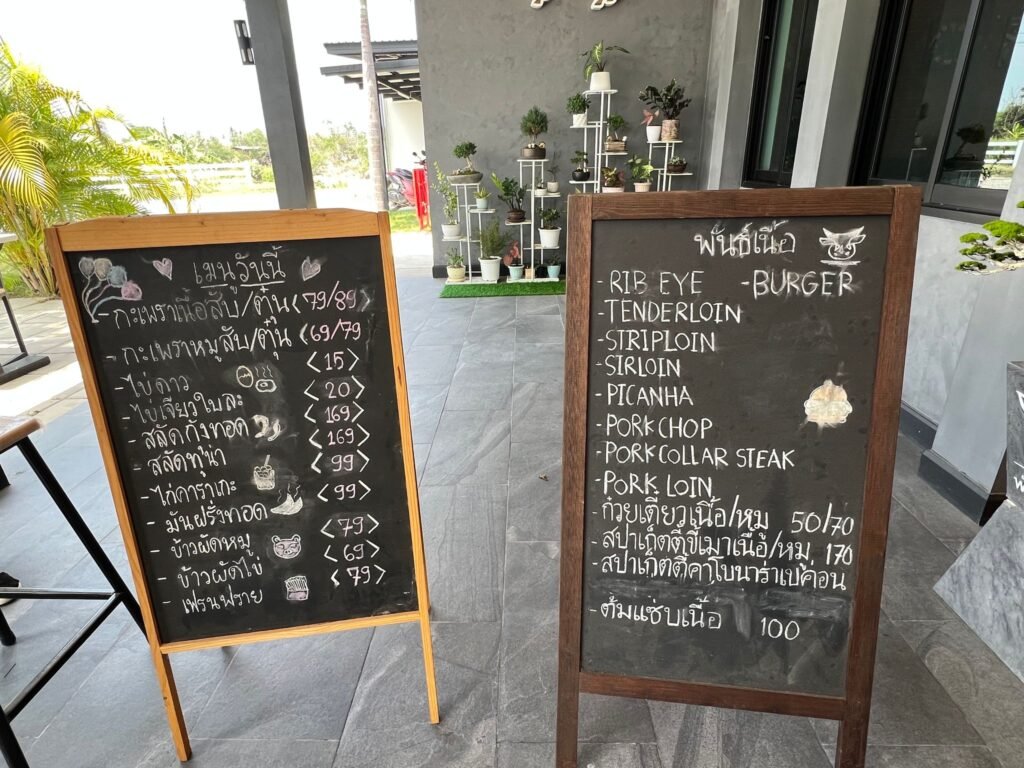 เมนูวันนี้
- กะเพราเนื้อสับ/ตุ๋น <79/89>
- กะเพราหมูสับ/ตุ๋น <69/79>
- ไข่ดาว <15>
- ไข่เจียวใบละ <20>
- สลัดกุ้งทอด <169>
- สลัดทูน่า <169>
- ไก่คาราเกะ <99>
- มันฝรั่งทอด <99>
- ข้าวผัดหมู <79>
- ข้าวผัดไข่ <69>
- เฟรนฟราย <79>
พันธ์เนื้อ
- RIB EYE - BURGER
- TENDERLOIN
- STRIPLOIN
- SIRLOIN
- PICANHA
- PORK CHOP
- PORK COLLAR STEAK
- PORK LOIN
- ก๋วยเตี๋ยวเนื้อ/หมู 50/70
- สปาเก็ตตี้ขี้เมาเนื้อ/หมู 170
- สปาเก็ตตี้คาโบนาร่าเบค่อน
- ต้มแซ่บเนื้อ 100